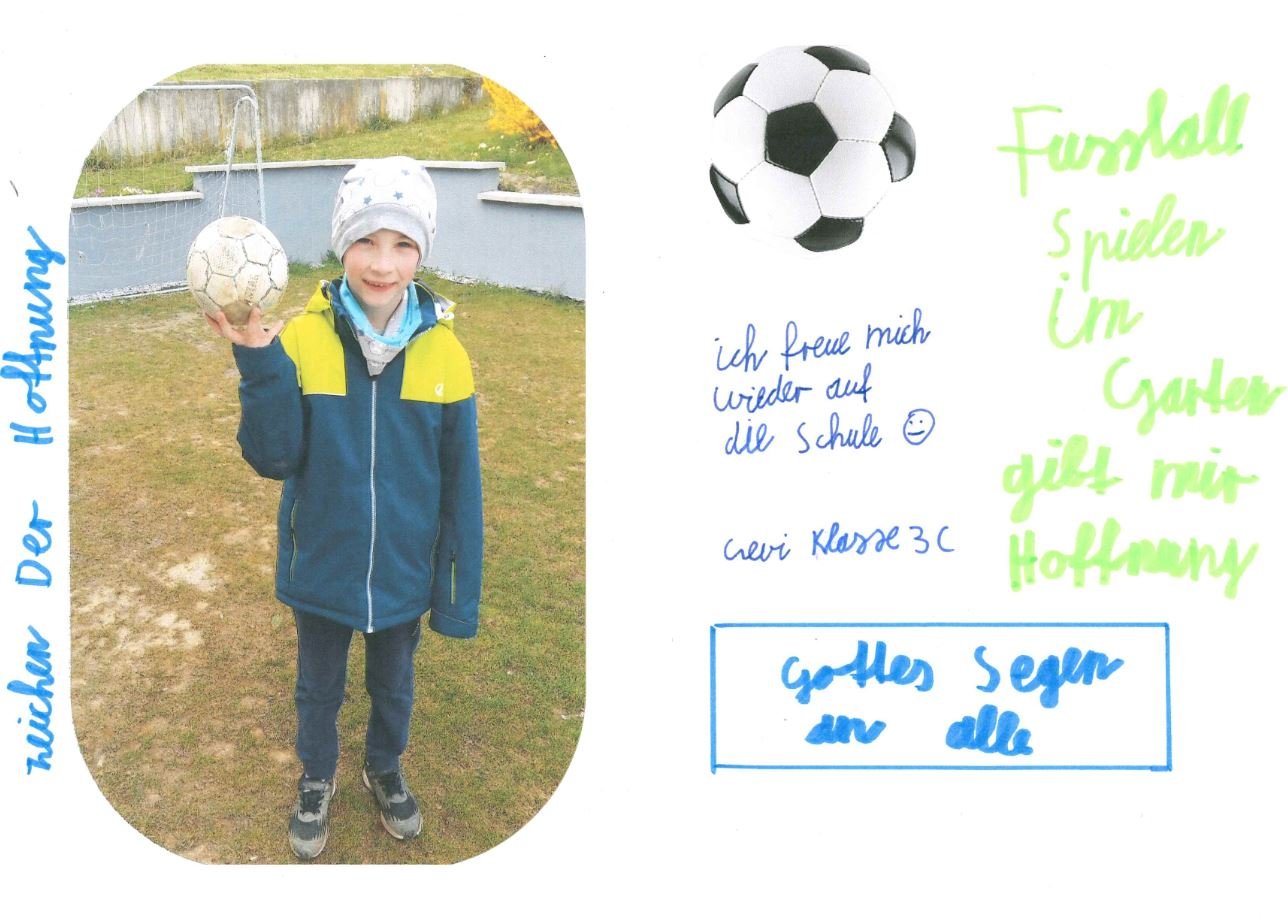 zeichen Der Hoffnung
Fussball
spielen
im
Garten
gibt mir
Hoffnung
ich freue mich
wieder auf
die Schule
Klasse 3C
Gottes Segen
an alle